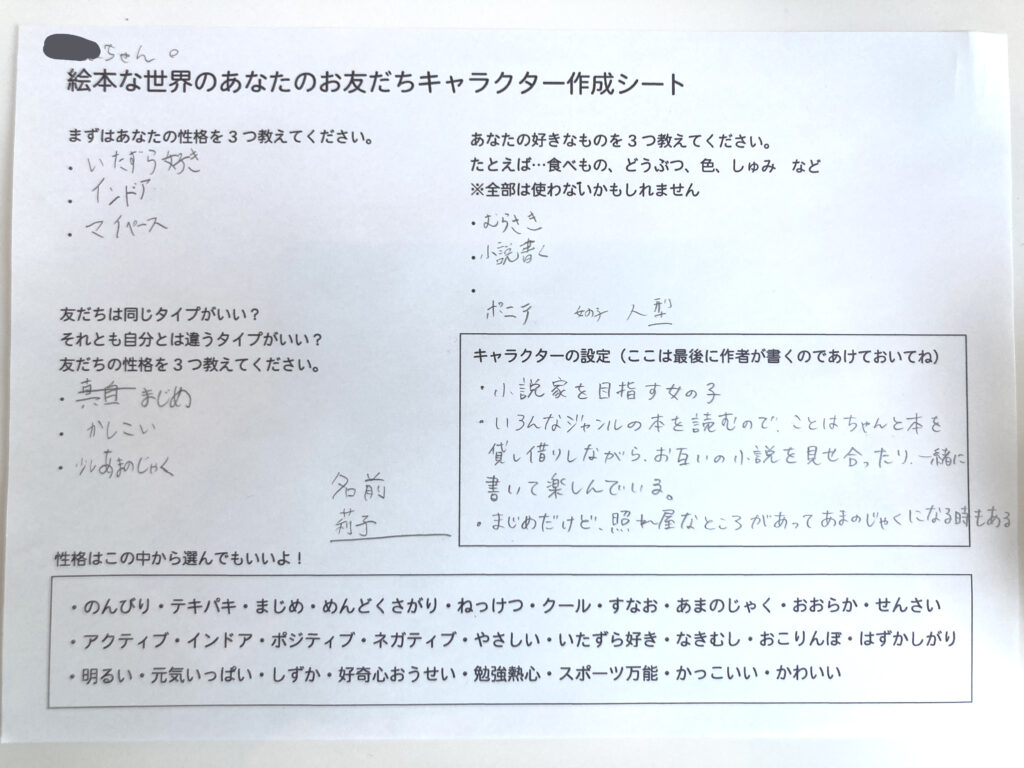 ちゃん
絵本な世界のあなたのお友だちキャラクター作成シート
まずはあなたの性格を３つ教えてください。
・いたずら好き
・インドア
・マイペース
あなたの好きなものを３つ教えてください。
たとえば…食べもの、どうぶつ、色、しゅみ　など
※全部は使わないかもしれません
・むらさき
・小説書く
・
ポニテ　女の子　人型
友だちは同じタイプがいい？
それとも自分とは違うタイプがいい？
友だちの性格を３つ教えてください。
・まじめ
・かしこい
・少しあまのじゃく
名前
莉子
キャラクターの設定（ここは最後に作者が書くのであけておいてね）
・小説家を目指す女の子
・いろんなジャンルの本を読むので、ことはちゃんと本を
貸し借りしながら、お互いの小説を見せ合ったり、一緒に
書いて楽しんでいる。
・まじめだけど、照れ屋なところがあってあまのじゃくになる時もある
性格はこの中から選んでもいいよ！
・のんびり・テキパキ・まじめ・めんどくさがり・ねっけつ・クール・すなお・あまのじゃく・おおらか・せんさい
・アクティブ・インドア・ポジティブ・ネガティブ・やさしい・いたずら好き・なきむし・おこりんぼ・はずかしがり
・明るい・元気いっぱい・しずか・好奇心おうせい・勉強熱心・スポーツ万能・かっこいい・かわいい